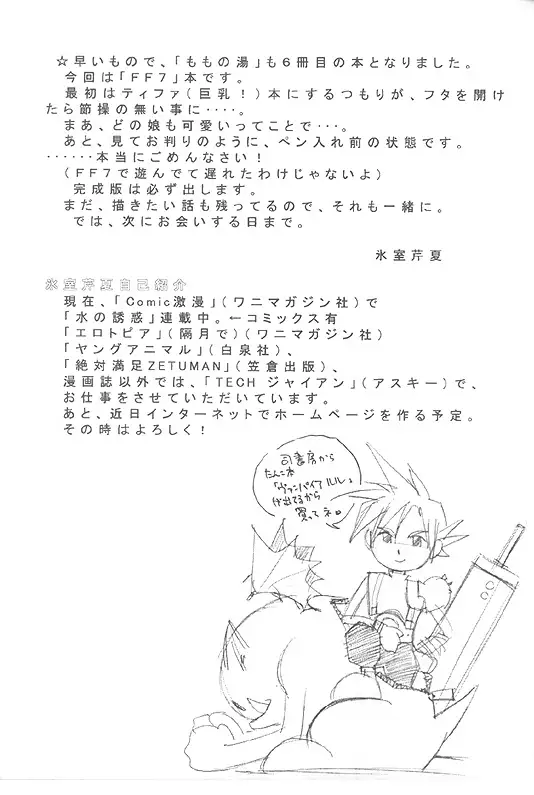 ☆早いもので、「ももの湯」も６冊目の本となりました。
今回は「ＦＦ７」本です。
最初はティファ（巨乳！）本にするつもりが、フタを開け
たら節操の無い事に‥‥。
まあ、どの娘も可愛いってことで‥・。
あと、見てお判りのように、ペン入れ前の状態です。
‥‥‥本当にごめんなさい！
（ＦＦ７で遊んでて遅れたわけじゃないよ）
完成版は必ず出します。
まだ、描きたい話も残ってるので、それも一緒に。
では、次にお会いする日まで。
氷室芹夏
氷室芹夏自己紹介
現在、「Comic激漫」（ワニマガジン社）で
「水の誘惑」連載中。←コミックス有
「エロトピア」（隔月で）（ワニマガジン社）
「ヤングアニマル」（白泉社）、
「絶対満足ZETUMAN」（笠倉出版）、
漫画誌以外では、「TECH ジャイアン」（アスキー）で、
お仕事をさせていただいています。
あと、近日インターネットでホームページを作る予定。
その時はよろしく！
司書房から
たんこ本
「ヴァンパイアルル」
が出てるから
買ってネ